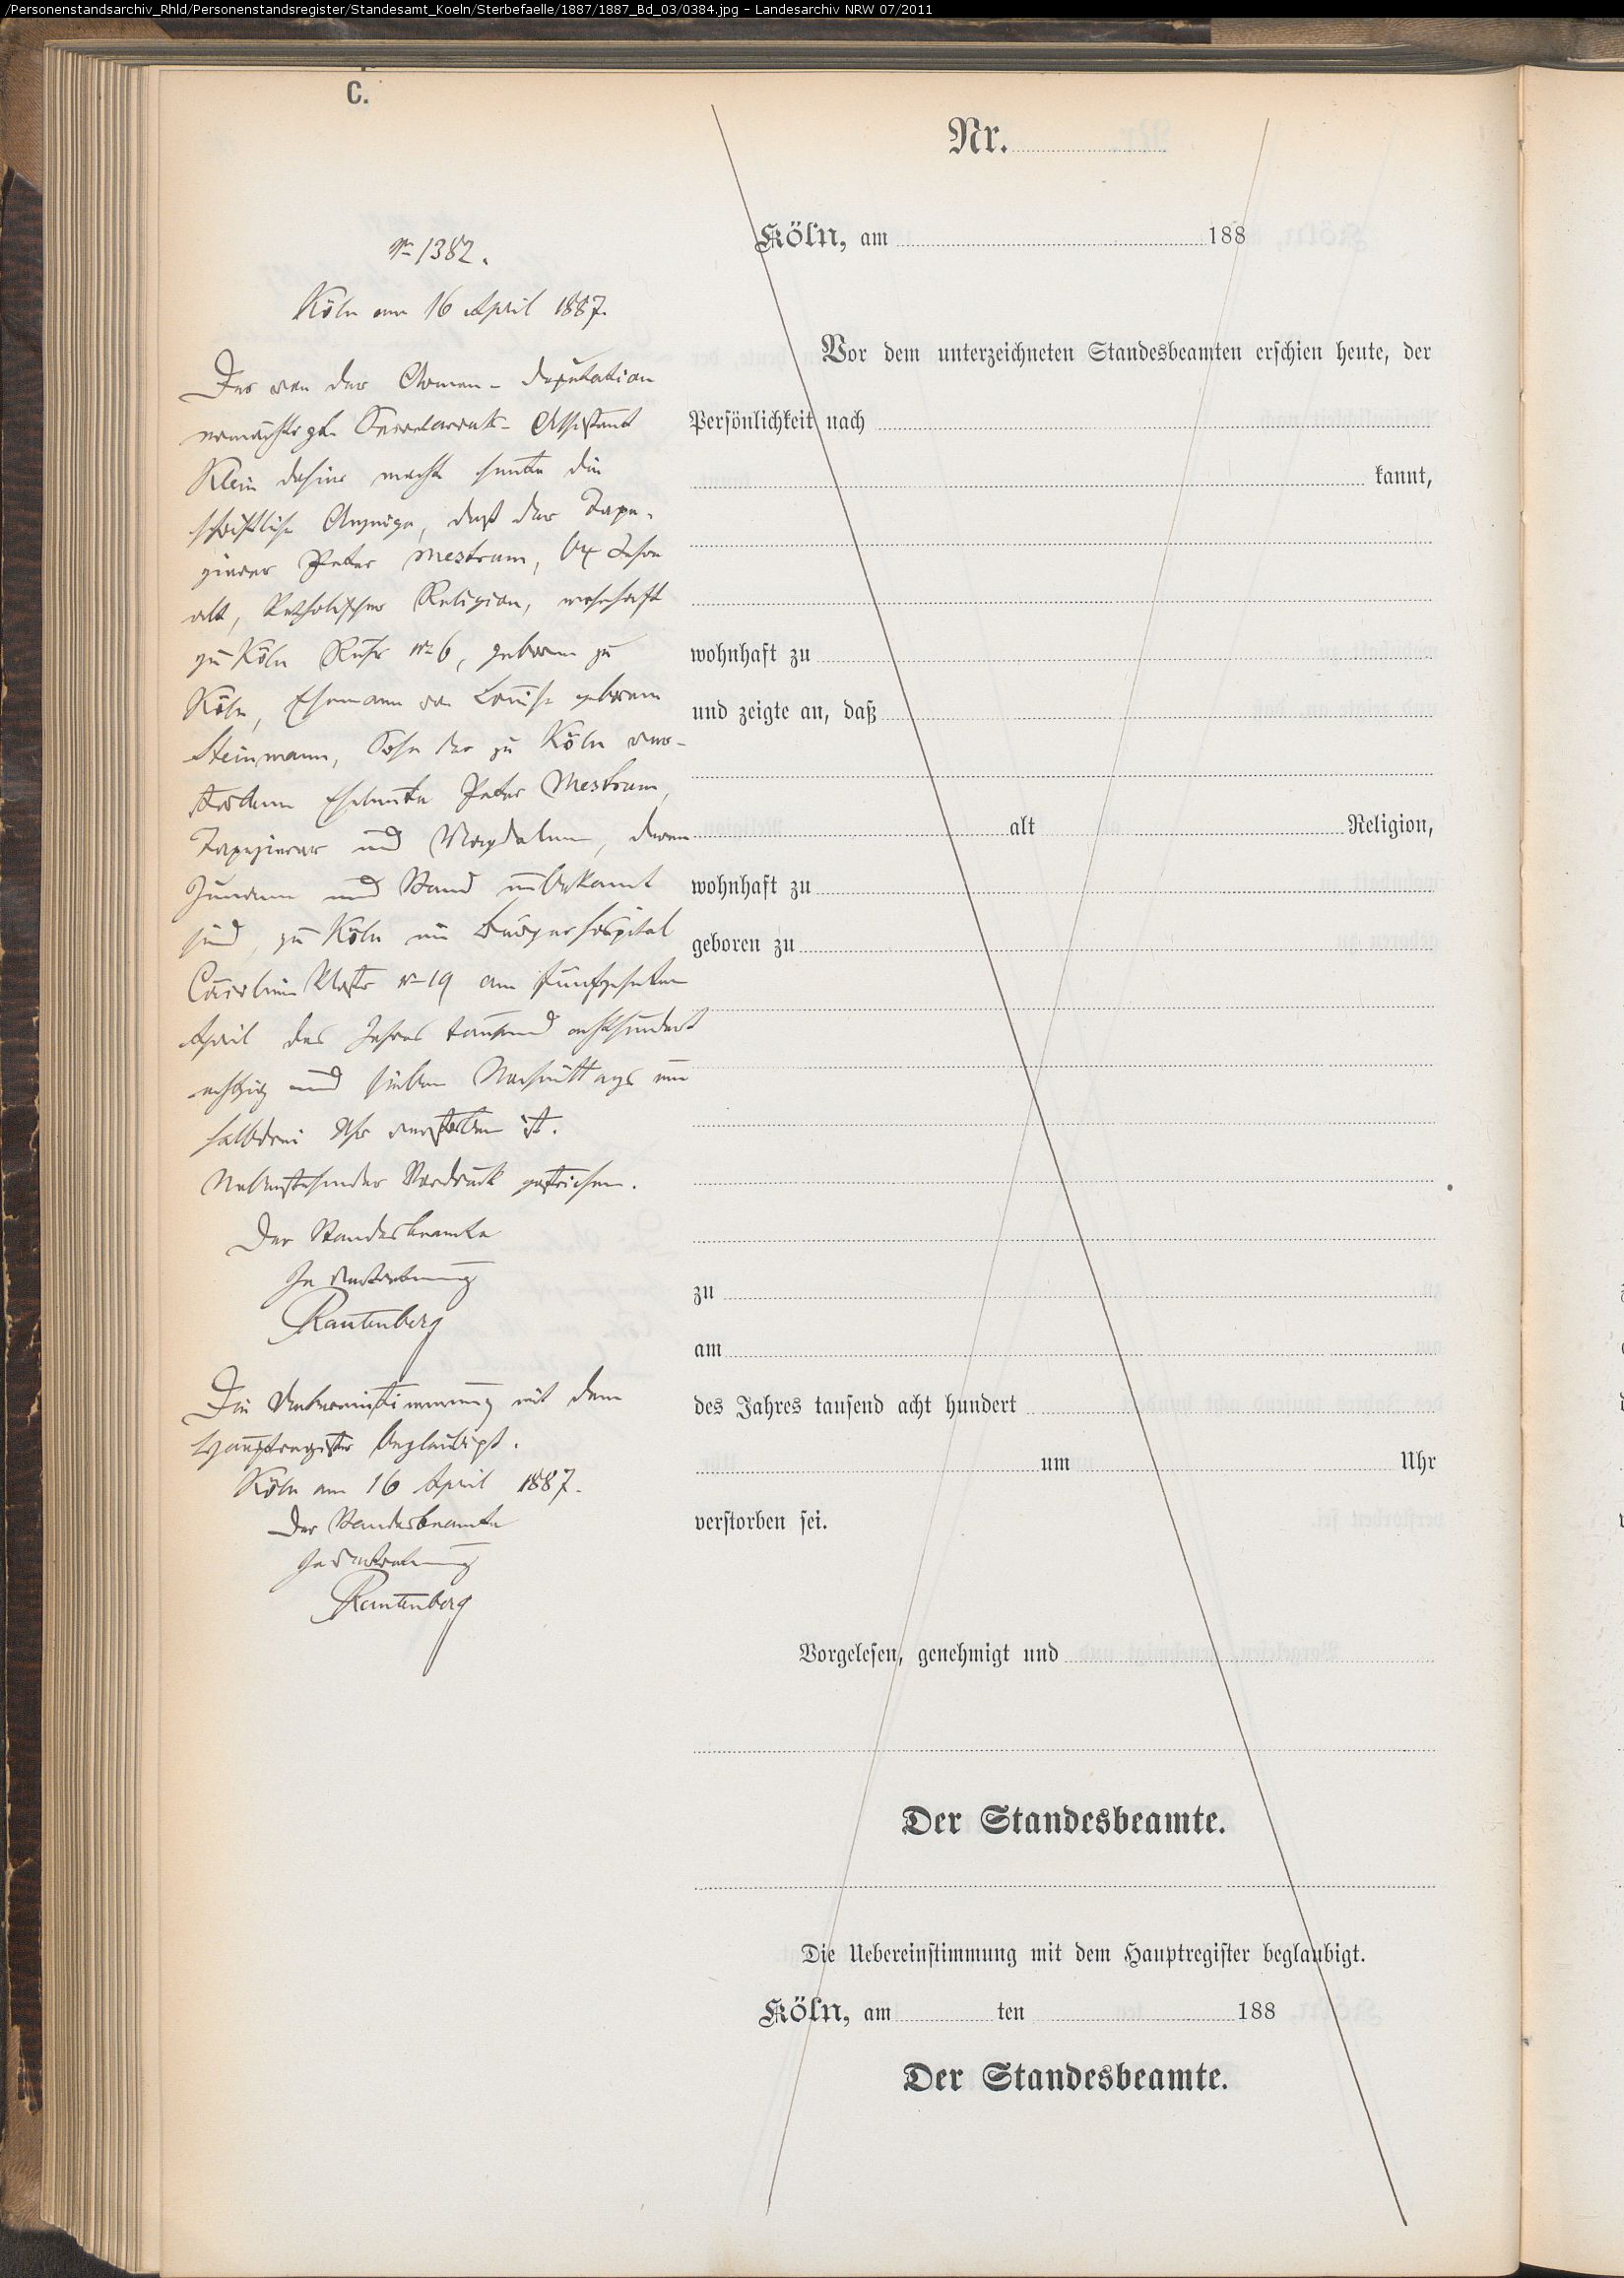 /Personenstandsarchiv_Rhld/Personenstandsregister/Standesamt_Koeln/Sterbefaelle/1887/1887_Bd_03/0384.jpg - Landesarchiv NRW 07/2011
C.
№ 1382.
Köln am 16 April 1887.
Der von der Armen-Deputation
ermächtigte Secretariats-Assistent
Klein dahier machte heute die
schriftliche Anzeige, daß der Tape-
zierer Peter Mestrum, 64 Jahre
alt, katholischer Religion, wohnhaft
zu Köln № 6, geboren zu
Köln, Ehemann von Louise geborene
Steinmann, Sohn der zu Köln ver-
storbenen Eheleute Peter Mestrum,
Tapezierer und Magdalena, deren
Zuname und Stand unbekannt
sind, zu Köln im Bürgerhospital
Cäcilien Kloster № 19 am fünfzehnten
April des Jahres tausend achthundert
achtzig und sieben Nachmittags um
halbdrei Uhr verstorben ist.
Nebenstehender Vordruck gestrichen.
Der Standesbeamte
In Vertretung
Rautenberg
Die Uebereinstimmung mit dem
Hauptregister beglaubigt.
Köln am 16 April 1887.
Der Standesbeamte
In Vertretung
Rautenberg
Nr.
Köln, am 188
Vor dem unterzeichneten Standesbeamten erschien heute, der
Persönlichkeit nach
kannt,
wohnhaft zu
und zeigte an, daß
alt Religion,
wohnhaft zu
geboren zu
zu
am
des Jahres tausend acht hundert
um Uhr
verstorben sei.
Vorgelesen, genehmigt und
Der Standesbeamte.
Die Uebereinstimmung mit dem Hauptregister beglaubigt.
Köln, am ten 188
Der Standesbeamte.